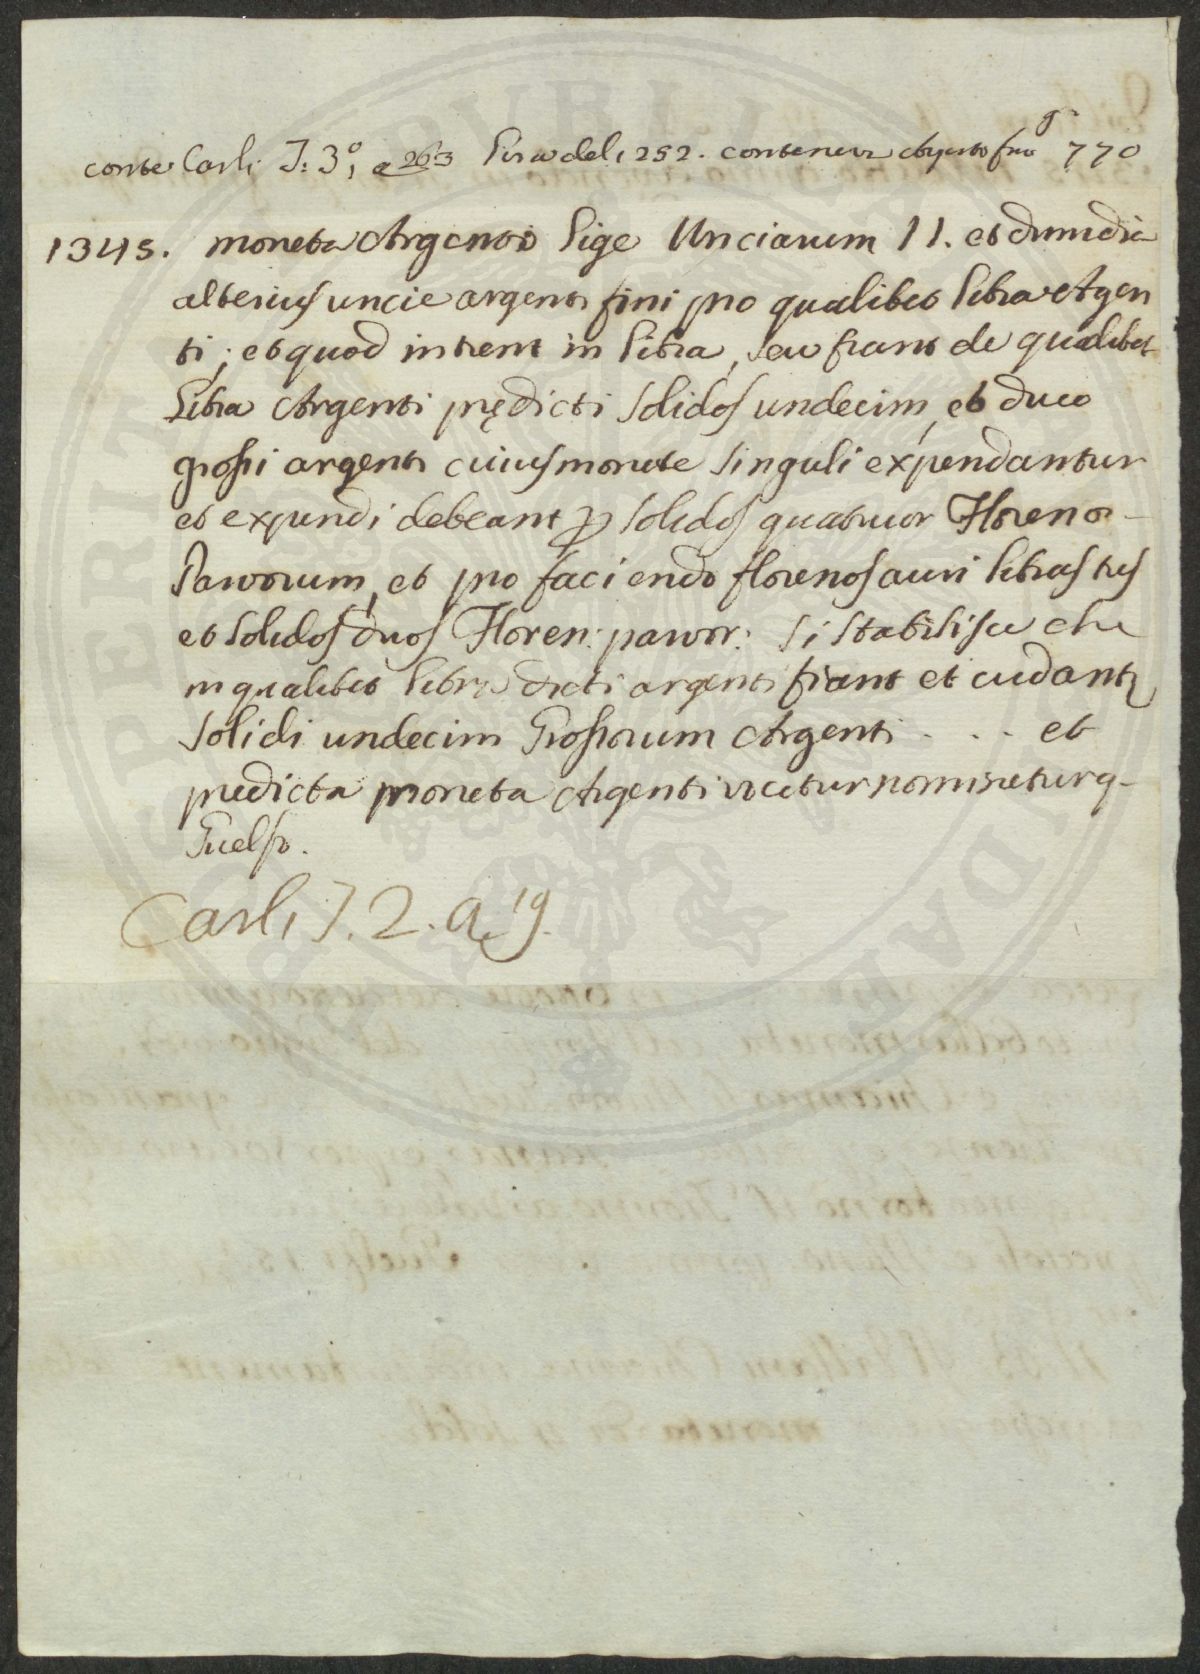 conte Carli T: 3°, a 263 Lira del 1252. conteneva Argento fino gr 770
1345. moneta Argenti Lige Unciarum 11. et dimidia
alterius uncie argenti fini pro qualibet Libra Argen
ti; et quod intrent in Libra, seu fiant de qualibet
Libra Argenti prędicti Solidos undecim, et duo
grossi argenti cuius monete singuli expendantur
et expendi debeant p Solidos quatuor Floreno-
Parvorum, et pro faciendo florenos auri libras tres
et solidos duos Floren: parvor: Si stabilisce che
in qualibet libra dicti argenti fiant et cudant
Solidi undecim Grossorum Argenti . . . et
predicta moneta Argenti vocetur nominetur q-
Guelfo.
Carli T. 2. a 19.